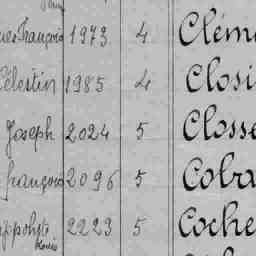 François 1973 4 Clém
Célestin 1985 4 Closi
Joseph 2024 5 Closse
François 2096 5 Cobra
Hippolyte 2223 5 Coche